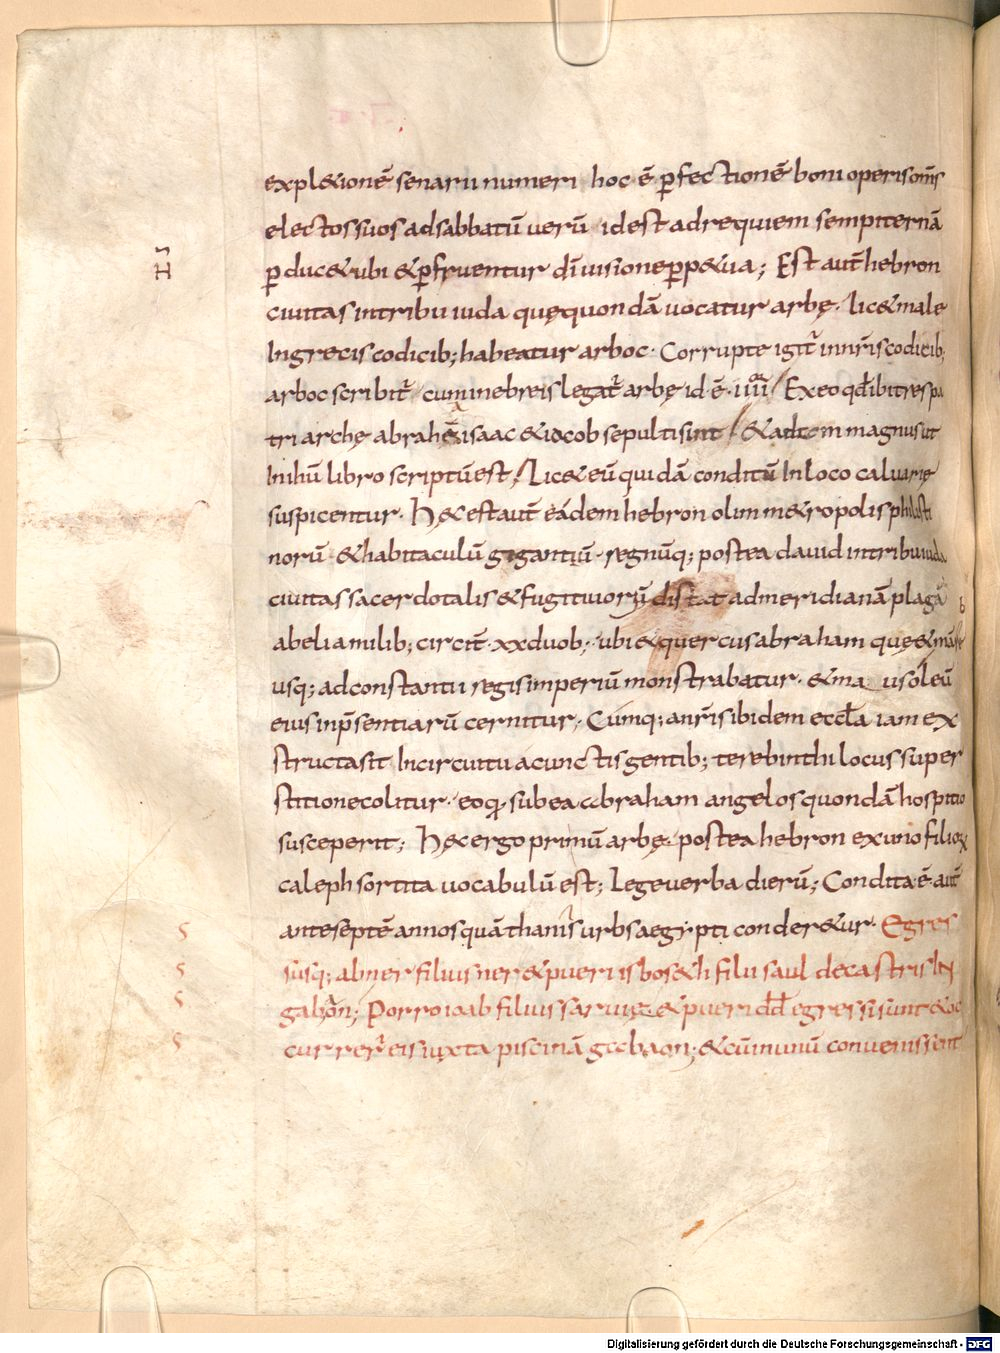 expl&ionē senarii numeri hoc ē ꝑfectionē boni operis om̄s
electos suos ad sabbatū uerū id est ad requiem sempiternā
ꝑduc& ubi & ꝑfruentur dī uisione perp&ua; Est aut̄ hebron
ciuitas in tribu iuda quę quondā uocatur arbę. lic& male
In grecis codicib; habeatur arboc. Corrupte igit̄ in nr̄is codicib;
arboc scribit̄ cum in ebreis legat̄ arbę id ē iiii Ex eo qđ ibi tres pa
triarchę abrahā isaac & iacob sepulti sint / & adam magnus ut
In ihū libro scriptū est / Lic& eū quidā conditū In loco caluarię
suspicentur. Hęc est aut̄ eadem hebron olim m&ropolis philisti
norū & habitaculū gigantiū. regnūq; postea dauid in tribu iuda
ciuitas sacerdotalis & fugitiuorū distat ad meridianā plagā
ab elia milib; circit̄ xx duob; ubi & quercus abraham quę & mābre
usq; ad constantii regis imperiū monstrabatur. & ma usoleū
eius inp̄sentiarū cernitur. Cumq; a nr̄is ibidem eccl̄a iam ex
structa sit In circuitu a cunctis gentib; terebinthi locus super
stitione colitur. eo qꝫ sub ea abraham angelos quondā hospitio
susceperit; Hęc ergo primū arbę. postea hebron ex uno filioꝝ
caleph sortita uocabulū est; Lege uerba dierū; Condita ē aut̄
ante septē annos quā thanis urbs aegypti conder&ur. Egres
susq; abner filius ner & pueri isbos&h filii saul de castris In
gabaon; Porro ioab filius saruię & pueri dd̄ egressi sunt & oc
currer̄ eis iuxta piscinā gabaon; & cū in unū conuenissent
Digitalisierung gefördert durch die Deutsche Forschungsgemeinschaft - DFG